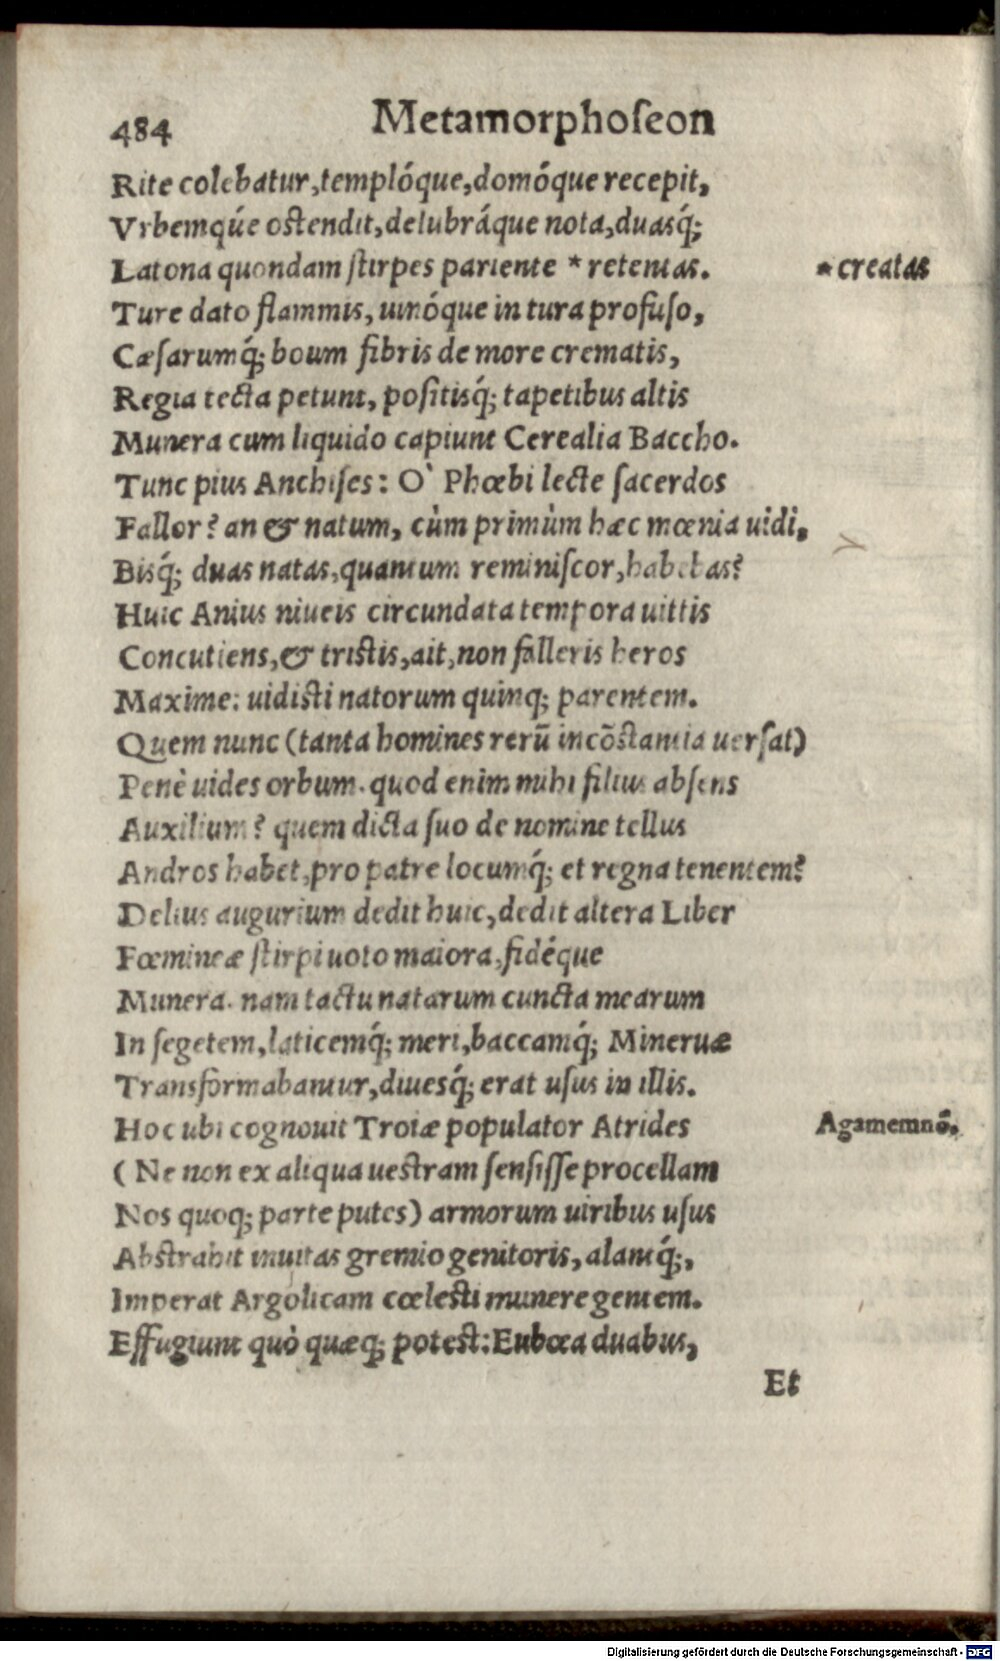 484 Metamorphoseon
Rite colebatur, templóque, domóque recepit,
Vrbemq́ue ostendit, delubráque nota, duasq́;
Latona quondam stirpes pariente * retentas. * creatas
Ture dato flammis, uinóque in tura profuso,
Cæsarumq́; boum fibris de more crematis,
Regia tecta petunt, positisq́; tapetibus altis
Munera cum liquido capiunt Cerealia Baccho.
Tunc pius Anchises: O` Phœbi lecte sacerdos
Fallor? an & natum, cùm primùm hæc mœnia uidi,
Bisq́; duas natas, quantum reminiscor, habebas?
Huic Anius niueis circundata tempora uittis
Concutiens, & tristis, ait, non falleris heros
Maxime: uidisti natorum quinq; parentem.
Quem nunc (tanta homines rerū incōstantia uersat)
Penè uides orbum. quod enim mihi filius absens
Auxilium? quem dicta suo de nomine tellus
Andros habet, pro patre locumq́; et regna tenentem?
Delius augurium dedit huic, dedit altera Liber
Fœmineæ stirpi uoto maiora, fidéque
Munera. nam tactu natarum cuncta mearum
In segetem, laticemq́; meri, baccamq́; Mineruæ
Transformabantur, diuesq́; erat usus in illis.
Hoc ubi cognouit Troiæ populator Atrides Agamemnō.
( Ne non ex aliqua uestram sensisse procellam
Nos quoq; parte putes) armorum uiribus usus
Abstrahit inuitas gremio genitoris, alantq́;,
Imperat Argolicam cœlesti munere gentem.
Effugiunt quò quæq; potest: Eubœa duabus,
Et
Digitalisierung gefördert durch die Deutsche Forschungsgemeinschaft - DFG